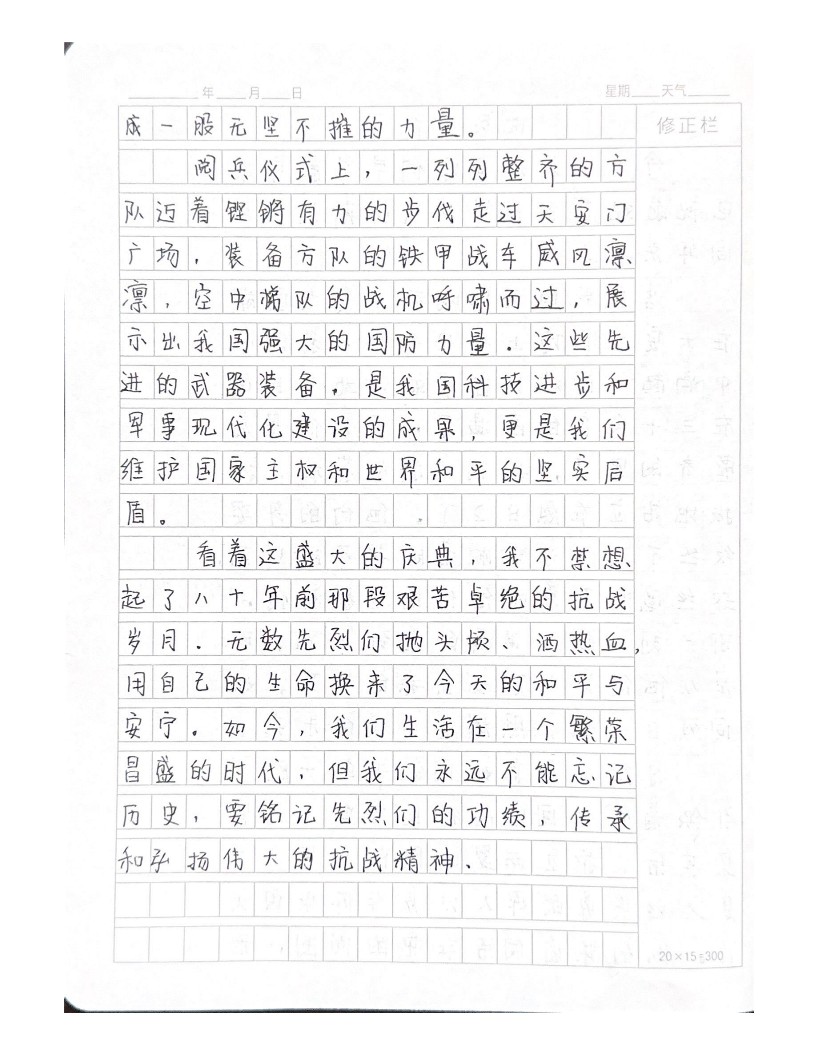 年 月 日 星期 天气
修正栏
成一股无坚不摧的力量。
阅兵仪式上，一列列整齐的方
队迈着铿锵有力的步伐走过天安门
广场，装备方队的铁甲战车威风凛
凛，空中梯队的战机呼啸而过，展
示出我国强大的国防力量．这些先
进的武器装备，是我国科技进步和
军事现代化建设的成果，更是我们
维护国家主权和世界和平的坚实后
盾。
看着这盛大的庆典，我不禁想
起了八十年前那段艰苦卓绝的抗战
岁月．无数先烈们抛头颅、洒热血，
用自己的生命换来了今天的和平与
安宁。如今，我们生活在一个繁荣
昌盛的时代，但我们永远不能忘记
历史，要铭记先烈们的功绩，传承
和弘扬伟大的抗战精神、
20×15=300